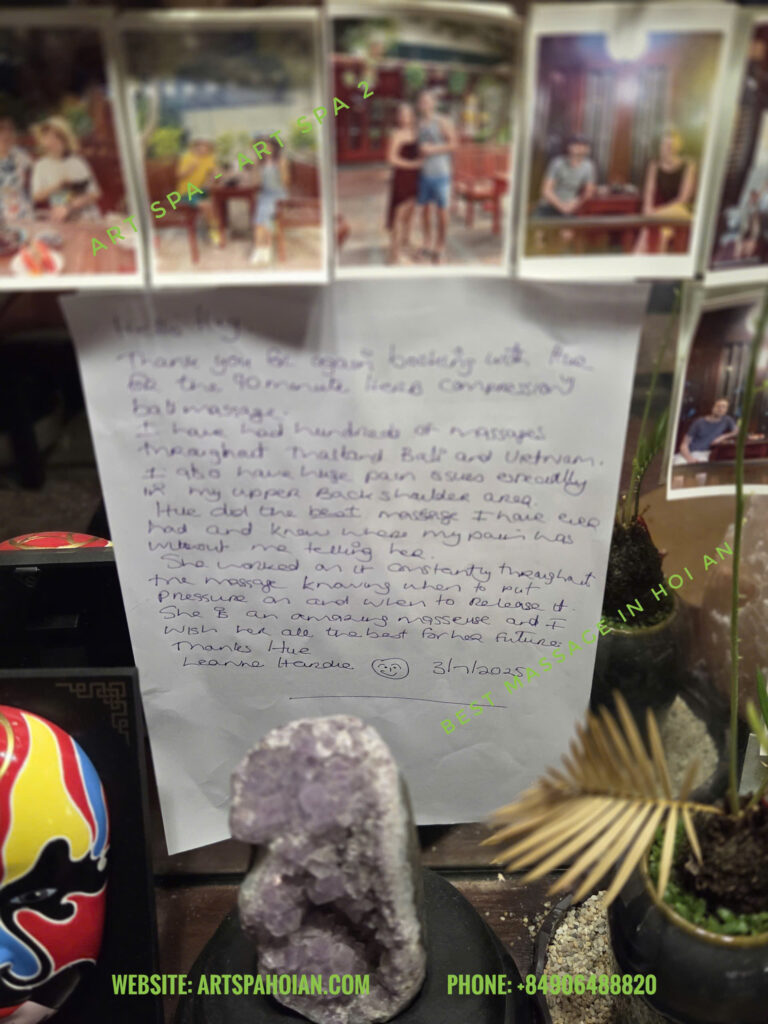 ART SPA - ART SPA 2
Thank you again, booking with Hue
for the 90 minute Herb compression
ball massage.
I have had hundreds of massages
throughout Thailand Bali and Vietnam.
I also have huge pain issues especially
in my upper Back shoulder area.
Hue did the best massage I have ever
had and knew where my pain was
without me telling her.
She worked on it constantly throughout
the massage knowing when to put
pressure on and when to release it.
She is an amazing masseuse and I
wish her all the best for her future
Thanks Hue
Leanne Hardie 3/7/2025
BEST MASSAGE IN HOI AN
WEBSITE: ARTSPAHOIAN.COM PHONE: +84906488820